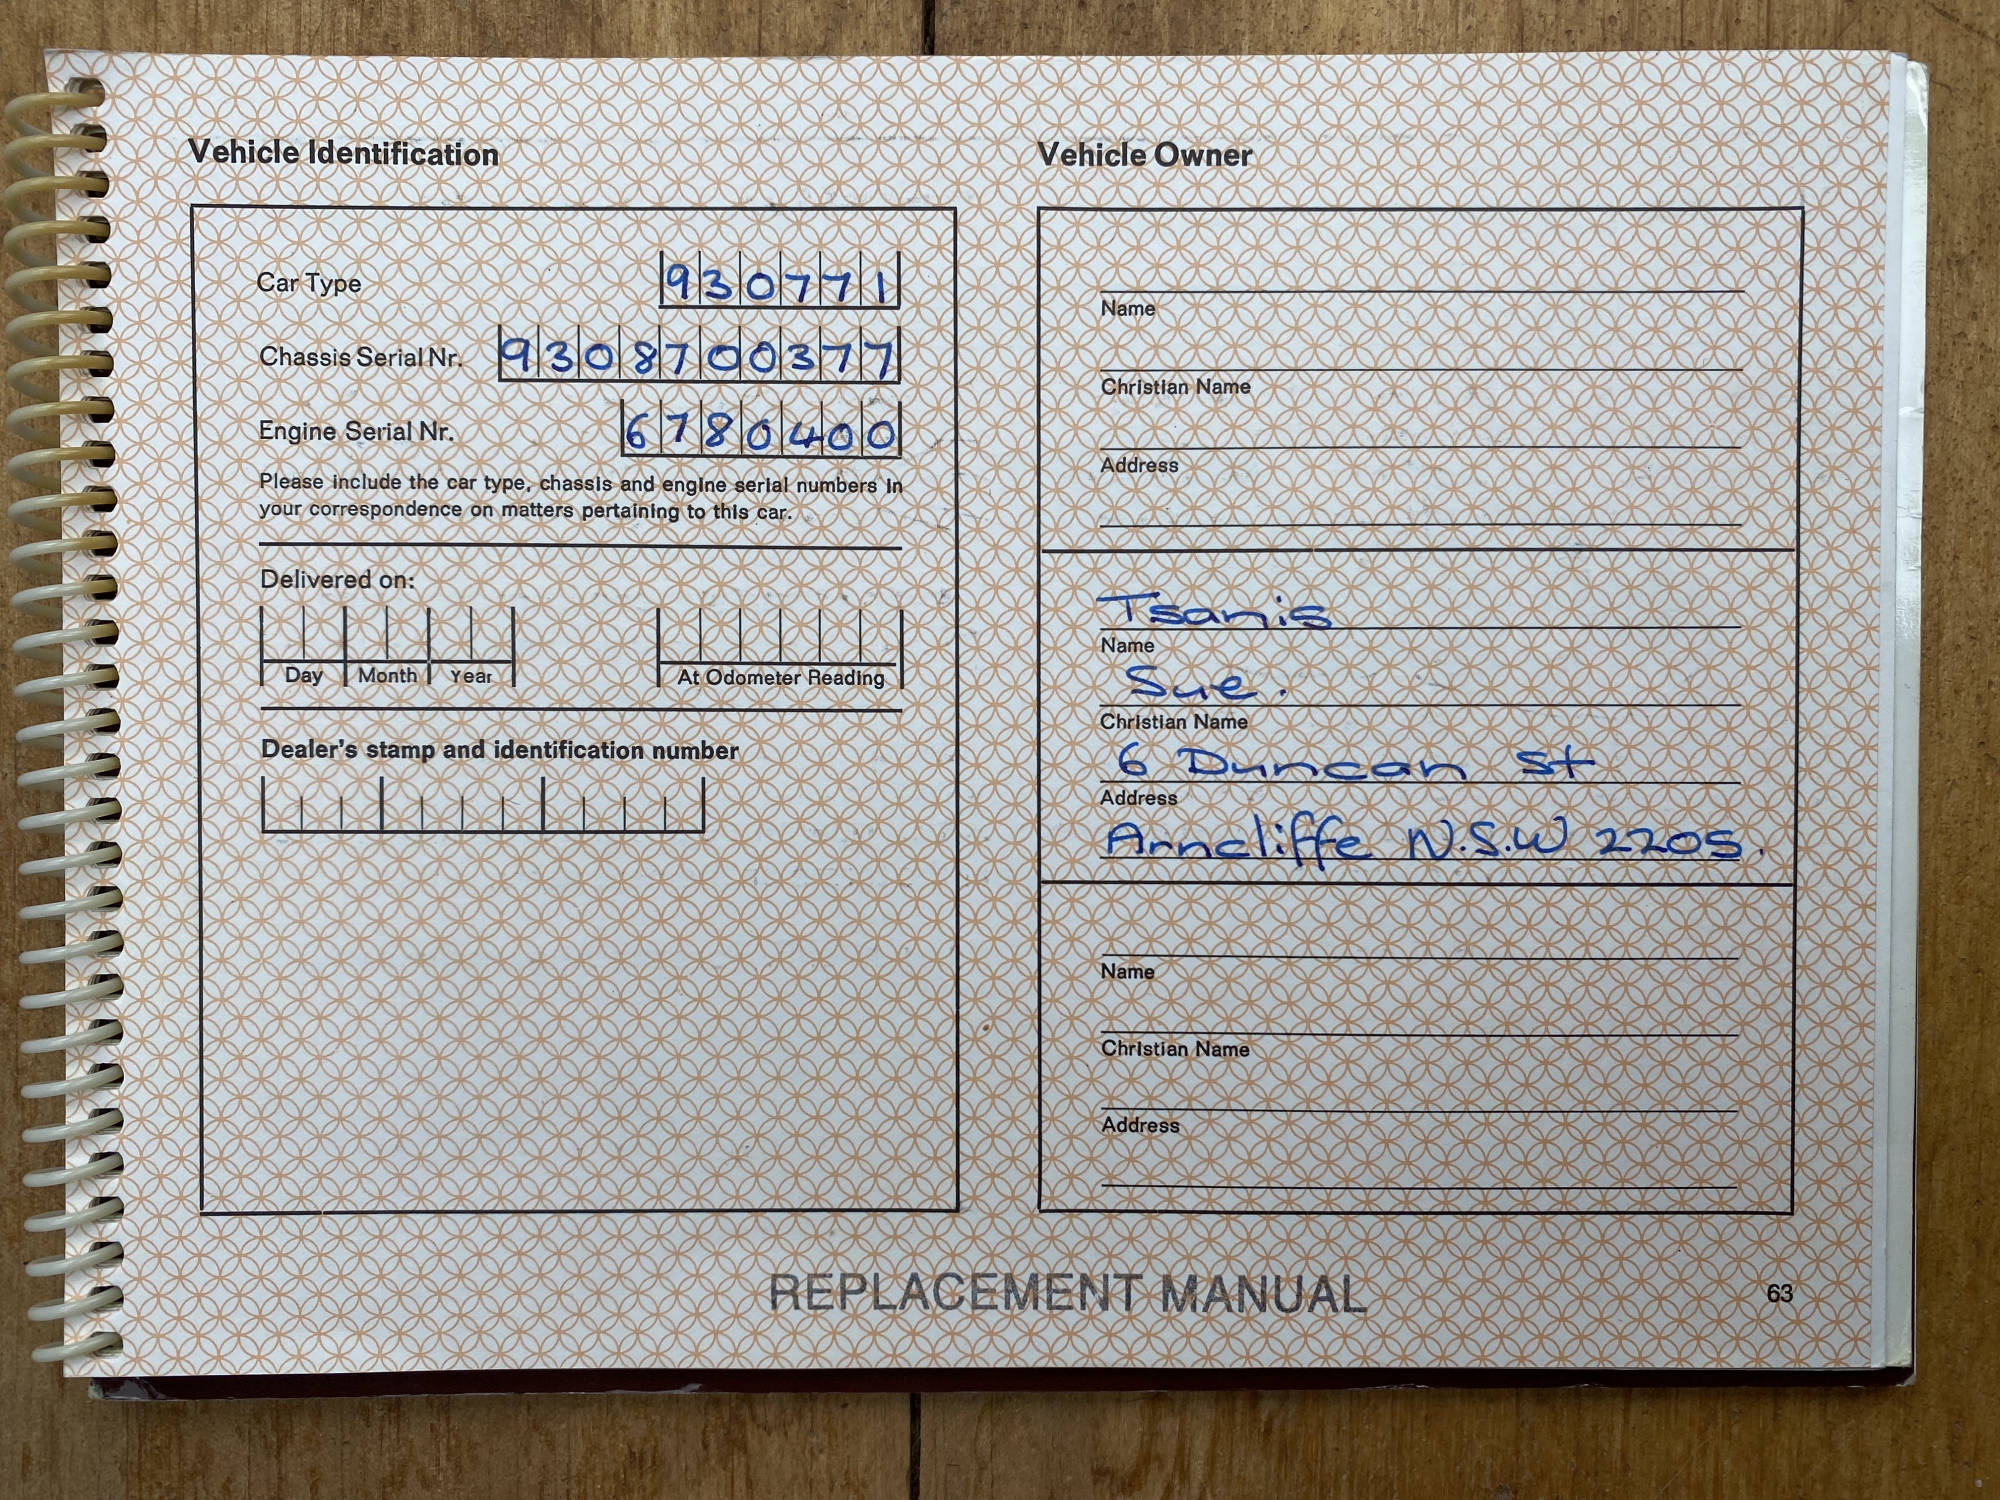 Vehicle Identification
Car Type 930771
Chassis Serial Nr. 9308700377
Engine Serial Nr. 6780400
Please include the car type, chassis and engine serial numbers in
your correspondence on matters pertaining to this car.
Delivered on:
Day Month Year At Odometer Reading
Dealer's stamp and identification number
Vehicle Owner
Name
Christian Name
Address
Tsanis
Name
Sue.
Christian Name
6 Duncan St
Address
Arncliffe N.S.W 2205.
Name
Christian Name
Address
REPLACEMENT MANUAL
63